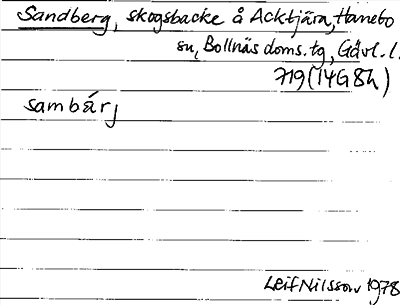 Sandberg, skogsbacke å Acktjära, Hanebo
sn, Bollnäs doms. tg, Gävl. l.
719 (14G8h)
sambárj
Leif Nilsson 1978